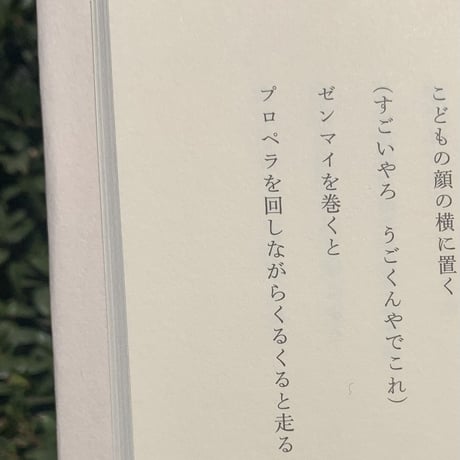 こどもの顔の横に置く
(すごいやろ　うごくんやでこれ)
ゼンマイを巻くと
プロペラを回しながらくるくると走る